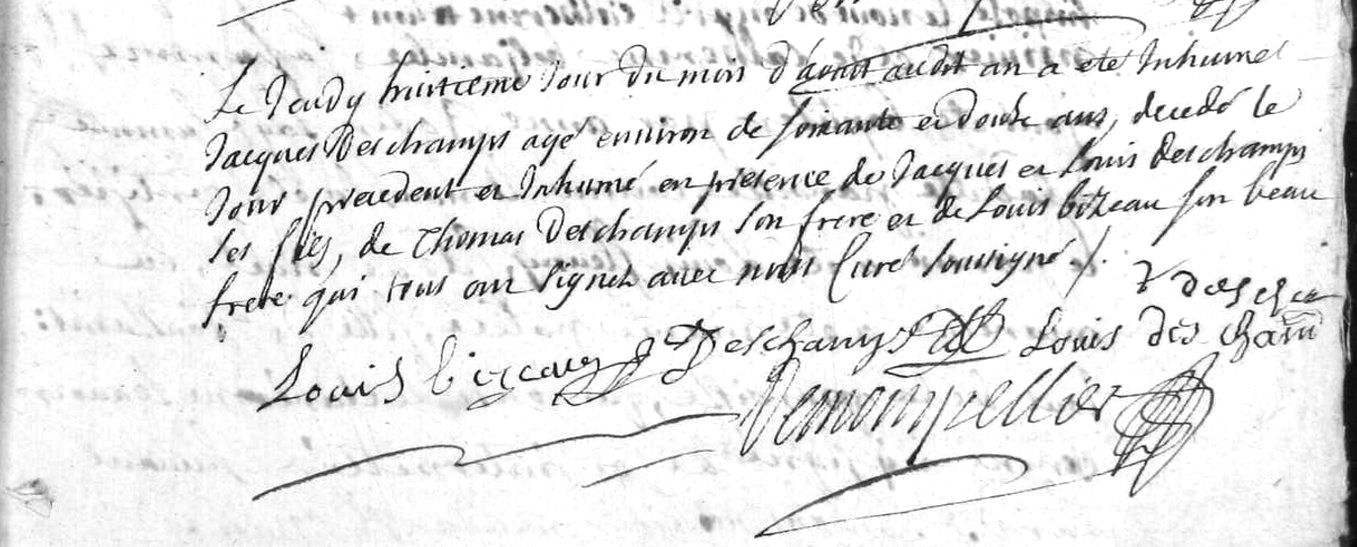 Le Jeudy huitieme Jour du mois d'avril audit an a eté Inhumé
Jacques Deschamps agé environ de soixante et douze ans, decedé le
Jour precedent et Inhumé en presence de Jacques et Louis deschamps
ses fils, de Thomas Deschamps son frere et de Louis bizeau son beau
frere qui tous ont signé avec nous Curé soussigné /.
Louis bizeau J Deschamps Louis des cham
T desch
Demompellier